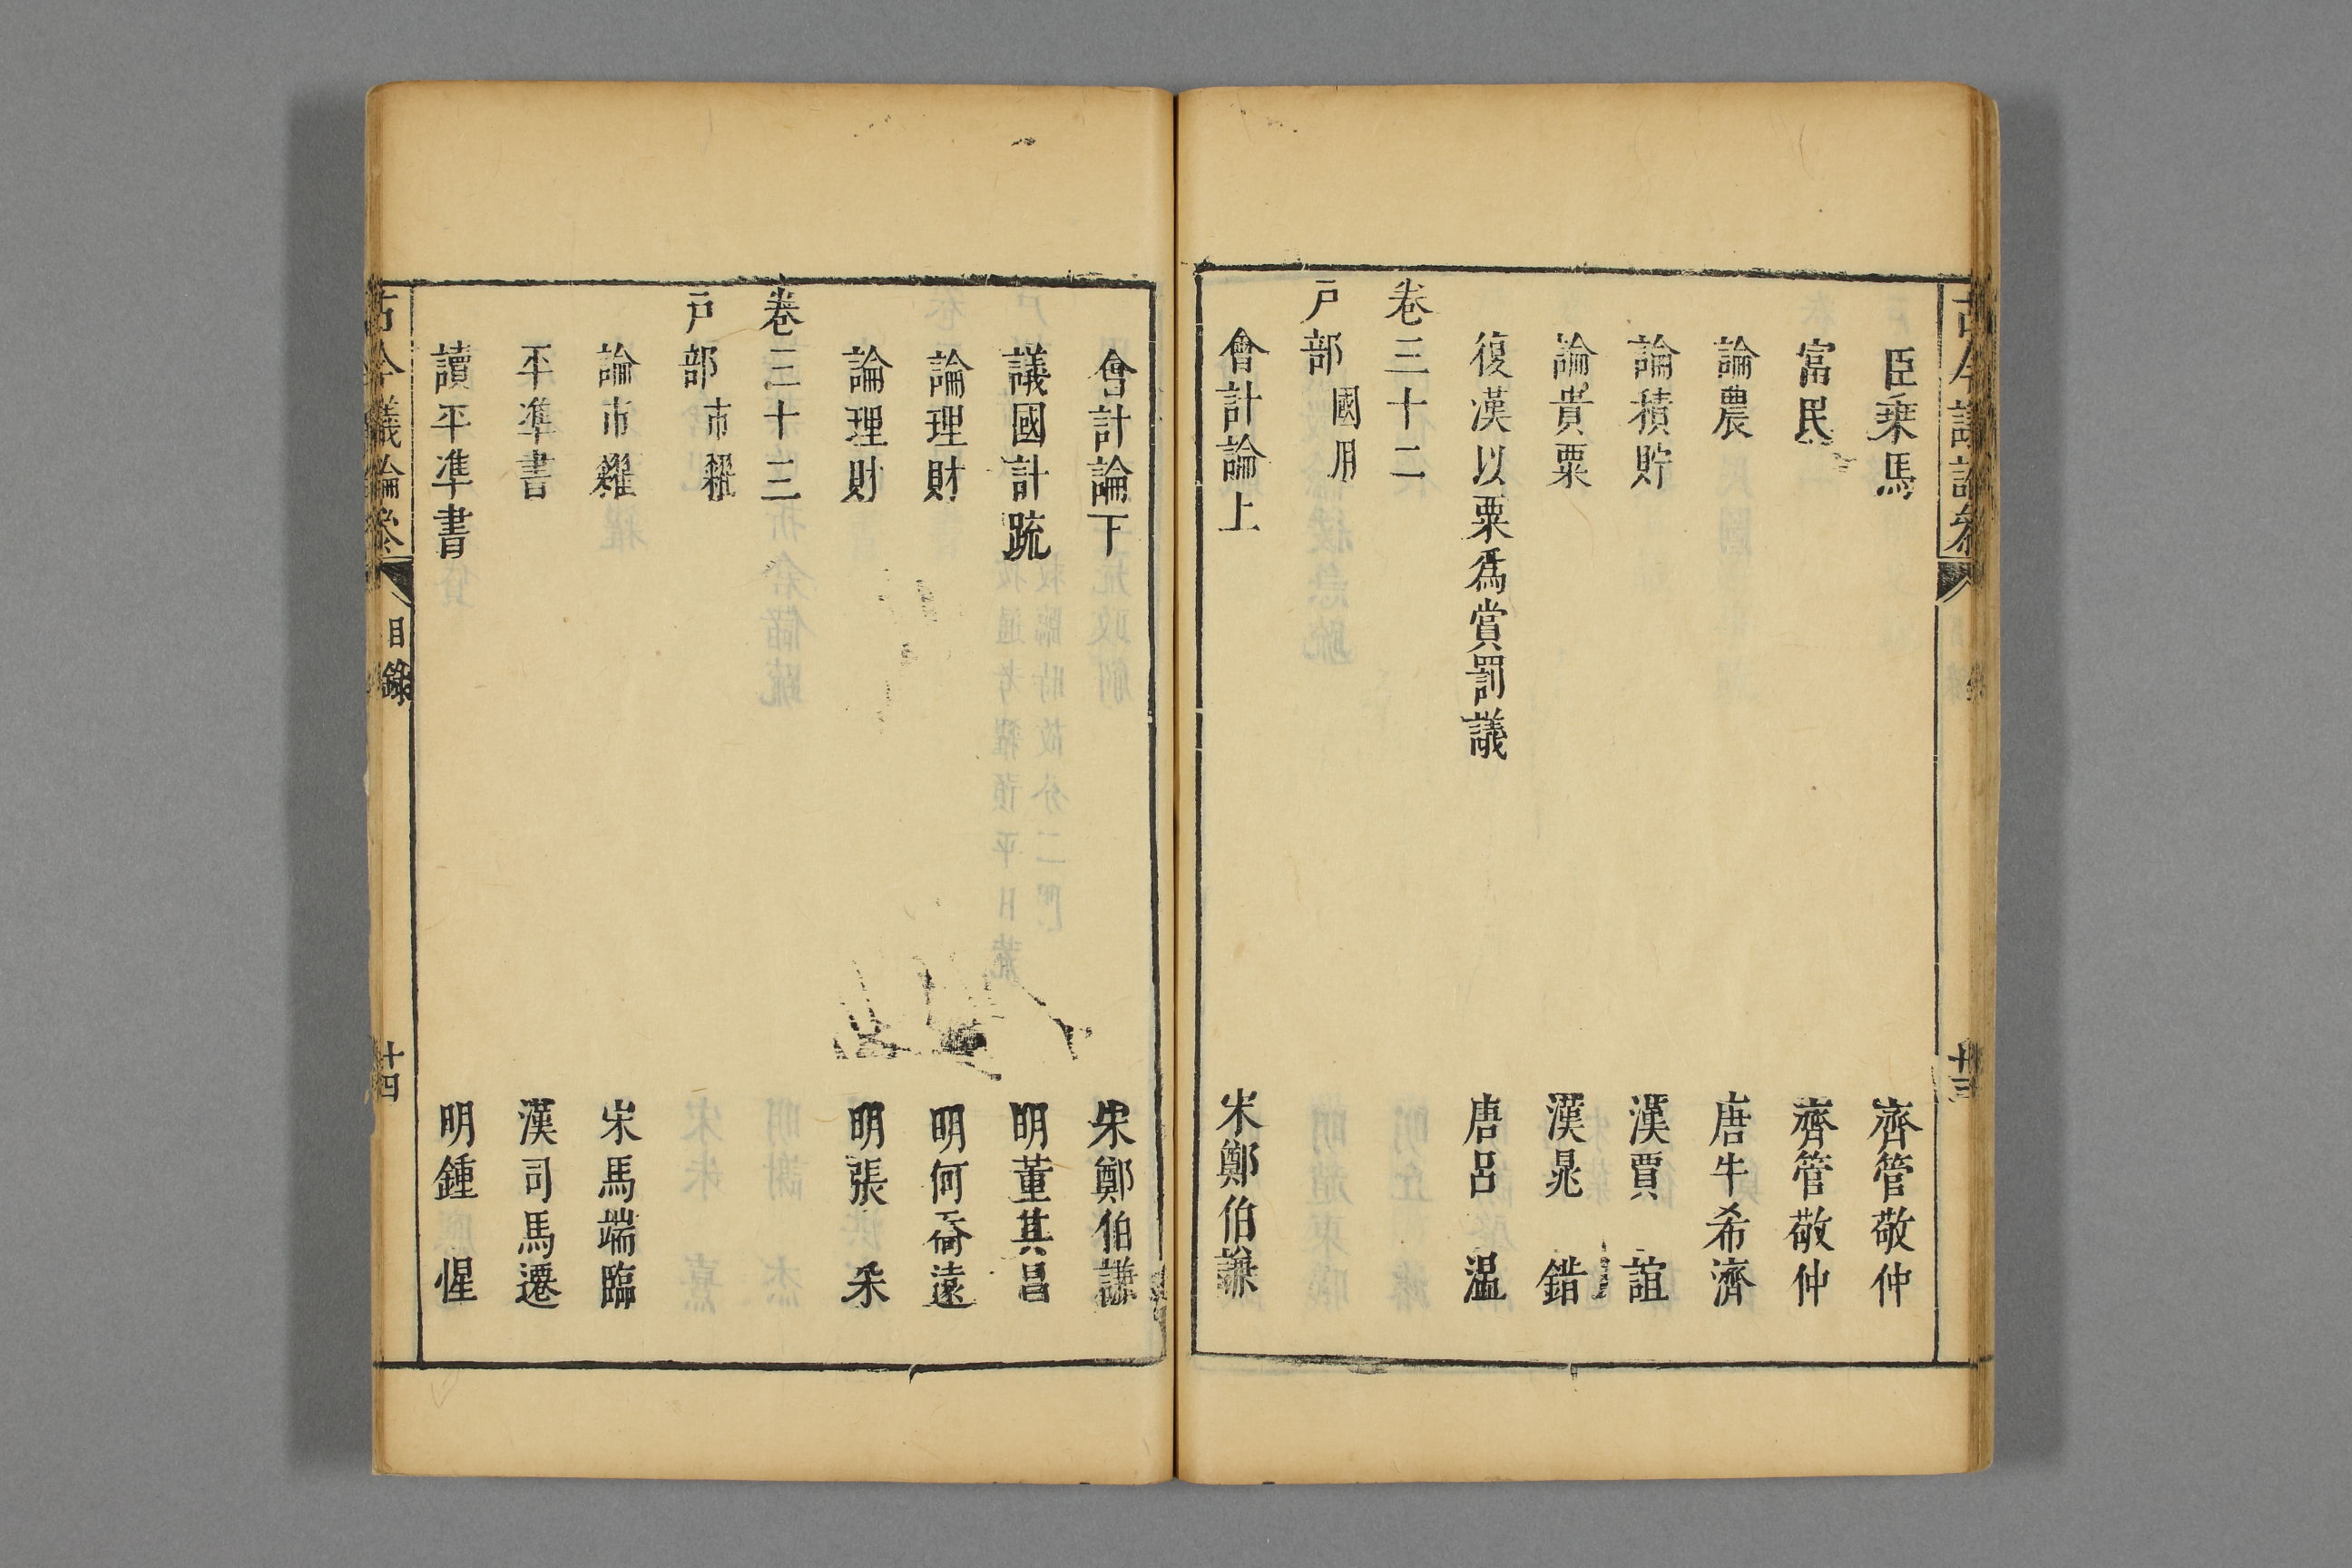 臣乗馬 齊管敬仲
富民 齊管敬仲
論農 唐牛希濟
論積貯 漢賈誼
論貴粟 漢晁錯
復漢以粟爲賞罰議 唐呂温
卷三十二
戸部 國用
會計論上 宋鄭伯謙
會計論下 宋鄭伯謙
議國計疏 明董其昌
論理財 明何喬遠
論理財 明張采
卷三十三
戸部 市糴
論市糴 宋馬端臨
平準書 漢司馬遷
讀平準書 明鍾惺
古今議論參 目錄 十四